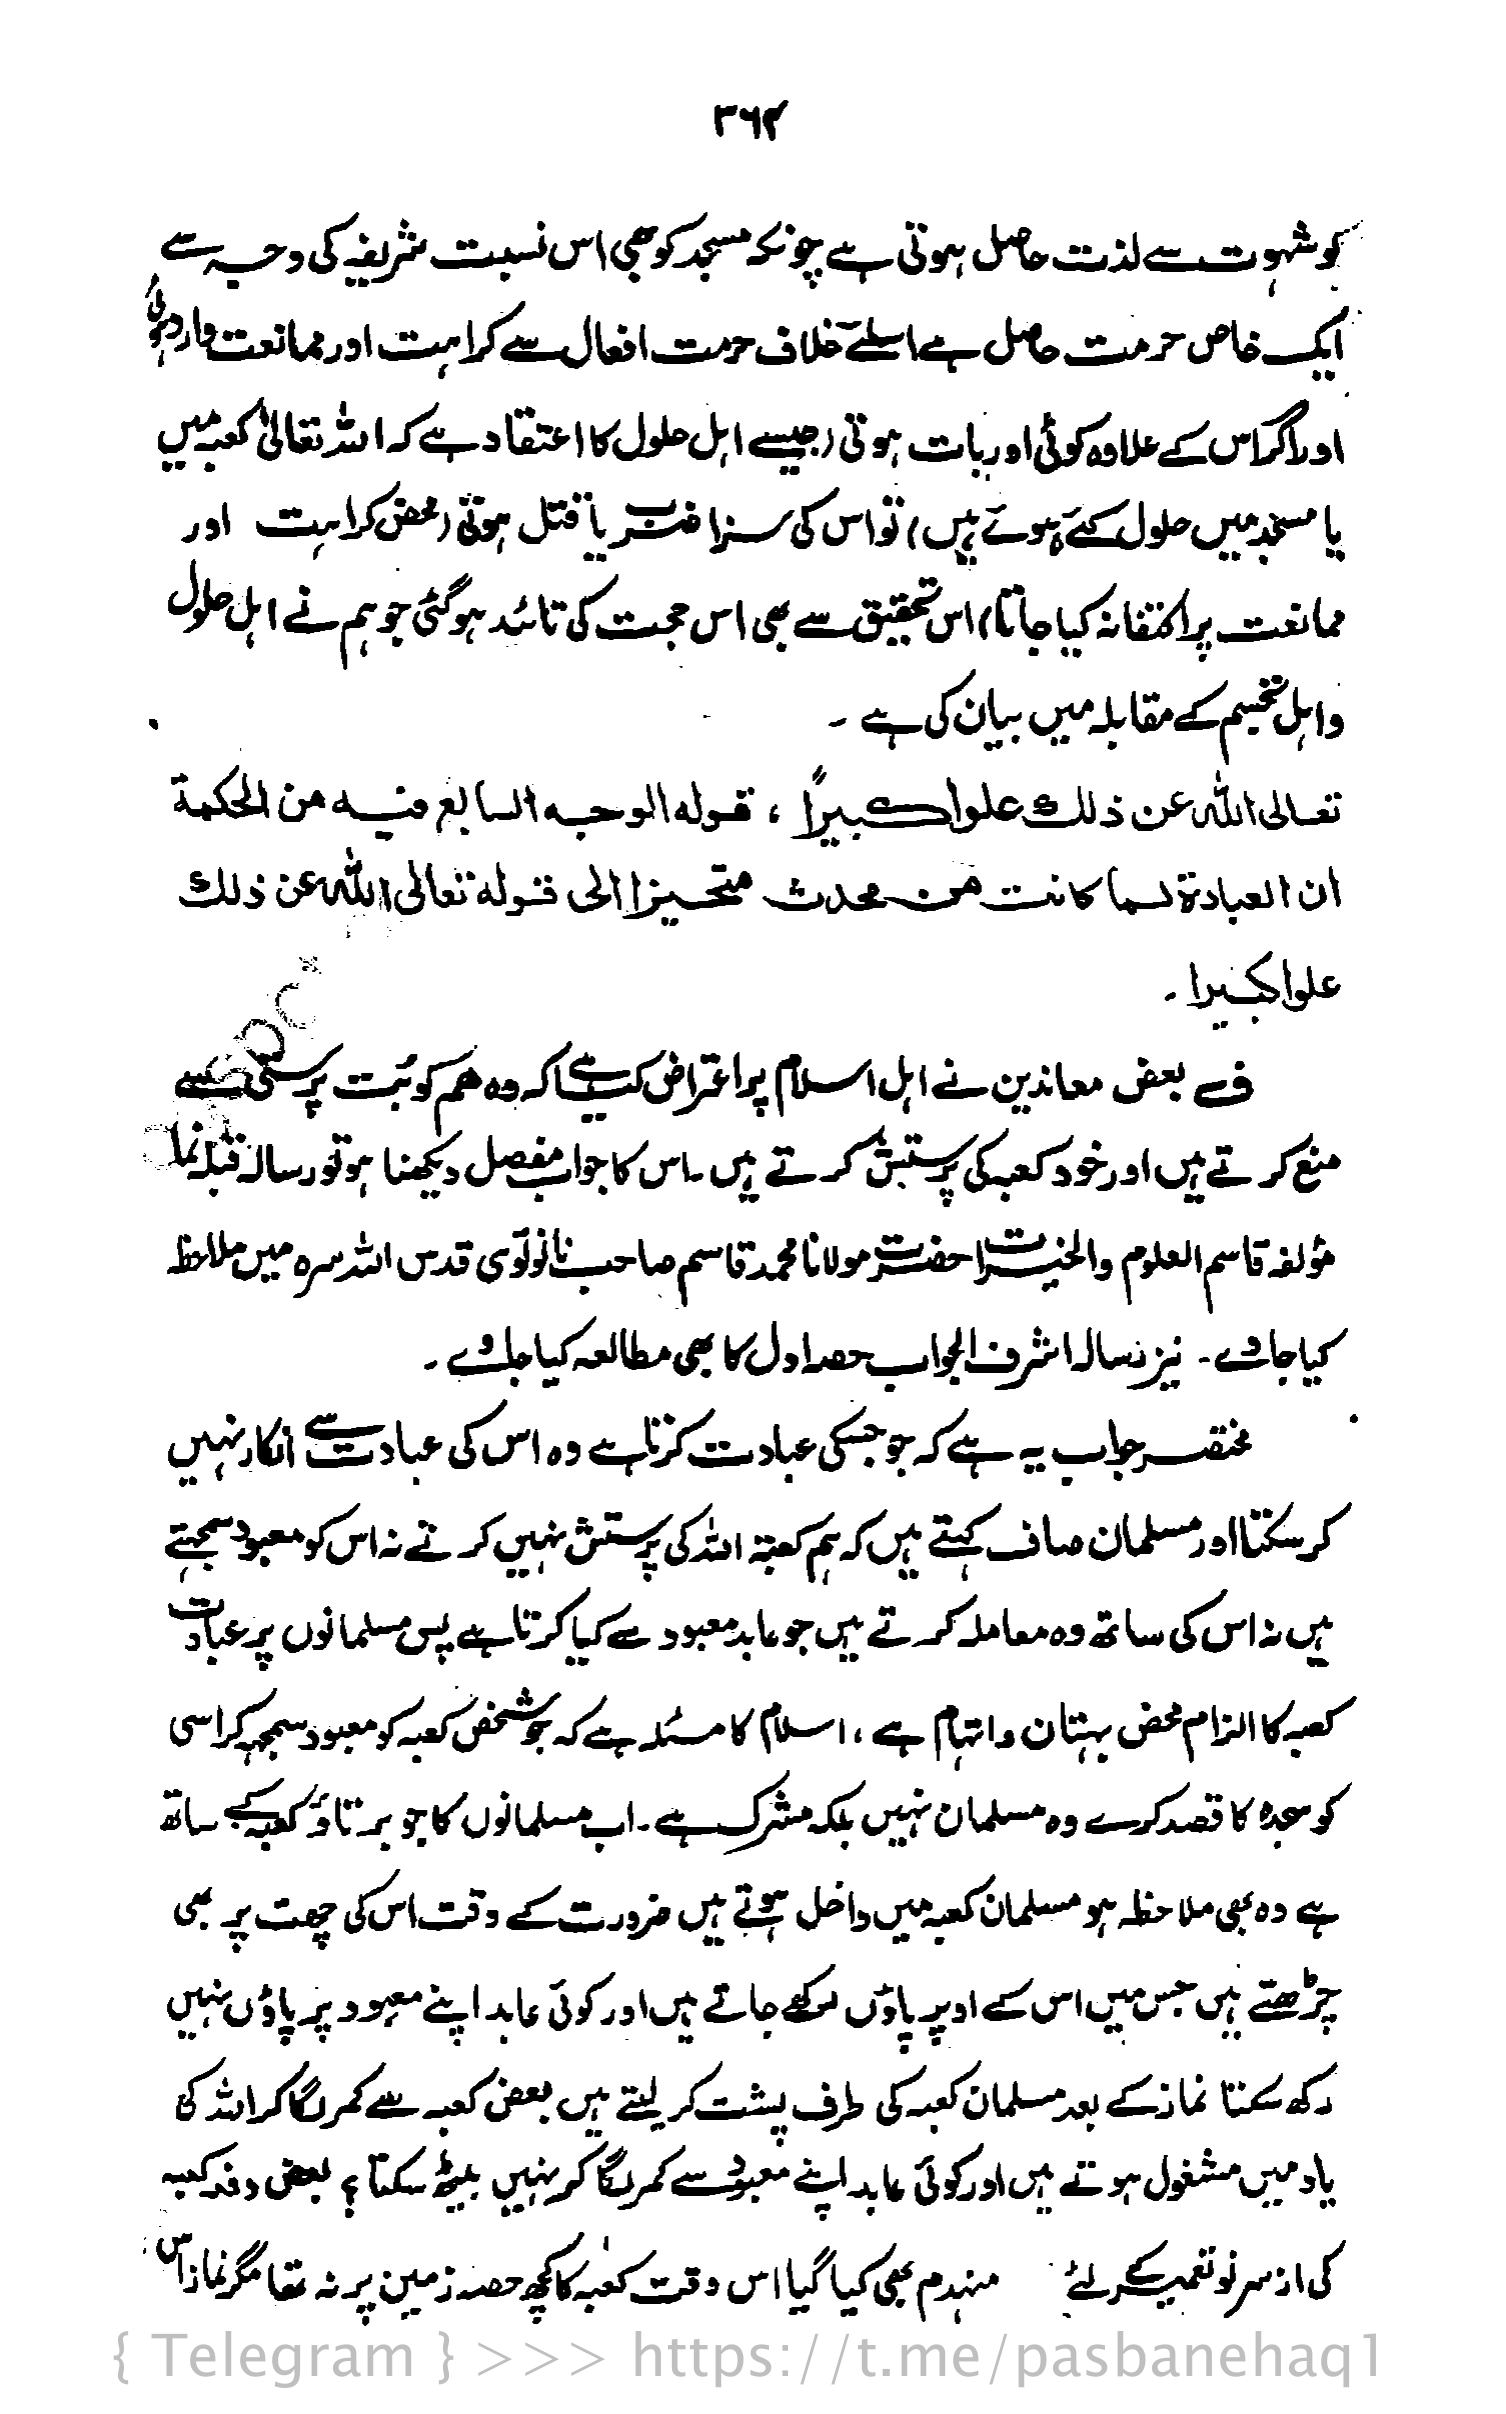 ۳۶۴
کو شہوت سے لذت حاصل ہوتی ہے چونکہ مسجد کو بھی اس نسبت شریفہ کی وجہ سے
ایک خاص حرمت حاصل ہے اسلئے خلاف حرمت افعال سے کراہت اور ممانعت وارد ہوئی
اور اگر اس کے علاوہ کوئی اور بات ہوتی (جیسے اہل حلول کا اعتقاد ہے کہ اللہ تعالیٰ کعبہ میں
یا مسجد میں حلول کئے ہوئے ہیں) تو اس کی سزا ضرب یا قتل ہوتی (محض کراہت اور
ممانعت پر اکتفا نہ کیا جاتا) اس تحقیق سے بھی اس حجت کی تائید ہوگئی جو ہم نے اہل حلول
واہل تجسیم کے مقابلہ میں بیان کی ہے ۔
تعالی اللہ عن ذلك علوا کبیراً ، قوله الوجه السابع فیه من الحکمة
ان العبادة لما کانت من محدث متحیزا الی قوله تعالی اللہ عن ذلك
علوا کبیرا ۔
ف بعض معاندین نے اہل اسلام پر اعتراض کیا ہے کہ وہ ہم کو بُت پرستی سے
منع کرتے ہیں اور خود کعبہ کی پرستش کرتے ہیں ۔ اس کا جواب مفصل دیکھنا ہو تو رسالہ قبلہ نما
مؤلفہ قاسم العلوم والخیرات حضرت مولانا محمد قاسم صاحب نانوتوی قدس اللہ سرہ میں ملاحظہ
کیا جاوے ۔ نیز رسالہ اشرف الجواب حصہ اول کا بھی مطالعہ کیا جاوے ۔
مختصر جواب یہ ہے کہ جو جسکی عبادت کرتا ہے وہ اس کی عبادت سے انکار نہیں
کر سکتا اور مسلمان صاف کہتے ہیں کہ ہم کعبۃ اللہ کی پرستش نہیں کرتے نہ اس کو معبود سمجہتے
ہیں نہ اس کی ساتھ وہ معاملہ کرتے ہیں جو عابد معبود سے کیا کرتا ہے پس مسلمانوں پر عبادت
کعبہ کا الزام محض بہتان واتہام ہے ، اسلام کا مسئلہ ہے کہ جو شخص کعبہ کو معبود سمجہہ کر اسی
کو سجدہ کا قصد کرے وہ مسلمان نہیں بلکہ مشرک ہے ۔ اب مسلمانوں کا جو برتاؤ کعبہ کے ساتھ
ہے وہ بھی ملاحظہ ہو مسلمان کعبہ میں داخل ہوتے ہیں ضرورت کے وقت اس کی چھت پر بھی
چڑھتے ہیں جس میں اس کے اوپر پاؤں رکھے جاتے ہیں اور کوئی عابد اپنے معبود پر پاؤں نہیں
رکھ سکتا نماز کے بعد مسلمان کعبہ کی طرف پشت کر لیتے ہیں بعض کعبہ سے کمر لگا کر اللہ کی
یاد میں مشغول ہوتے ہیں اور کوئی عابد اپنے معبود سے کمر لگا کر نہیں بیٹھ سکتا ؟ بعض دفعہ کعبہ
کی از سر نو تعمیر کے لئے منہدم بھی کیا گیا اس وقت کعبہ کا کچھ حصہ زمین پر نہ تھا مگر نماز اس
{ Telegram } >>> https://t.me/pasbanehaq1